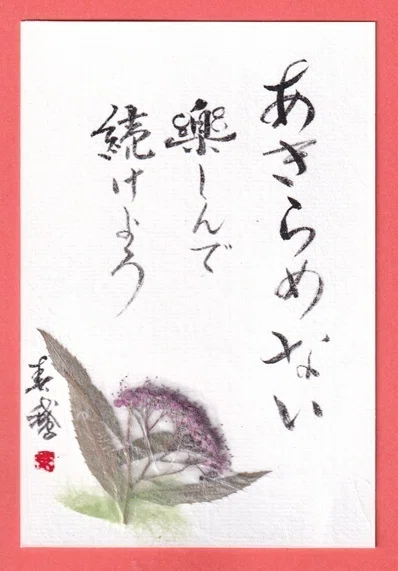 あきらめない
楽しんで
続けよう